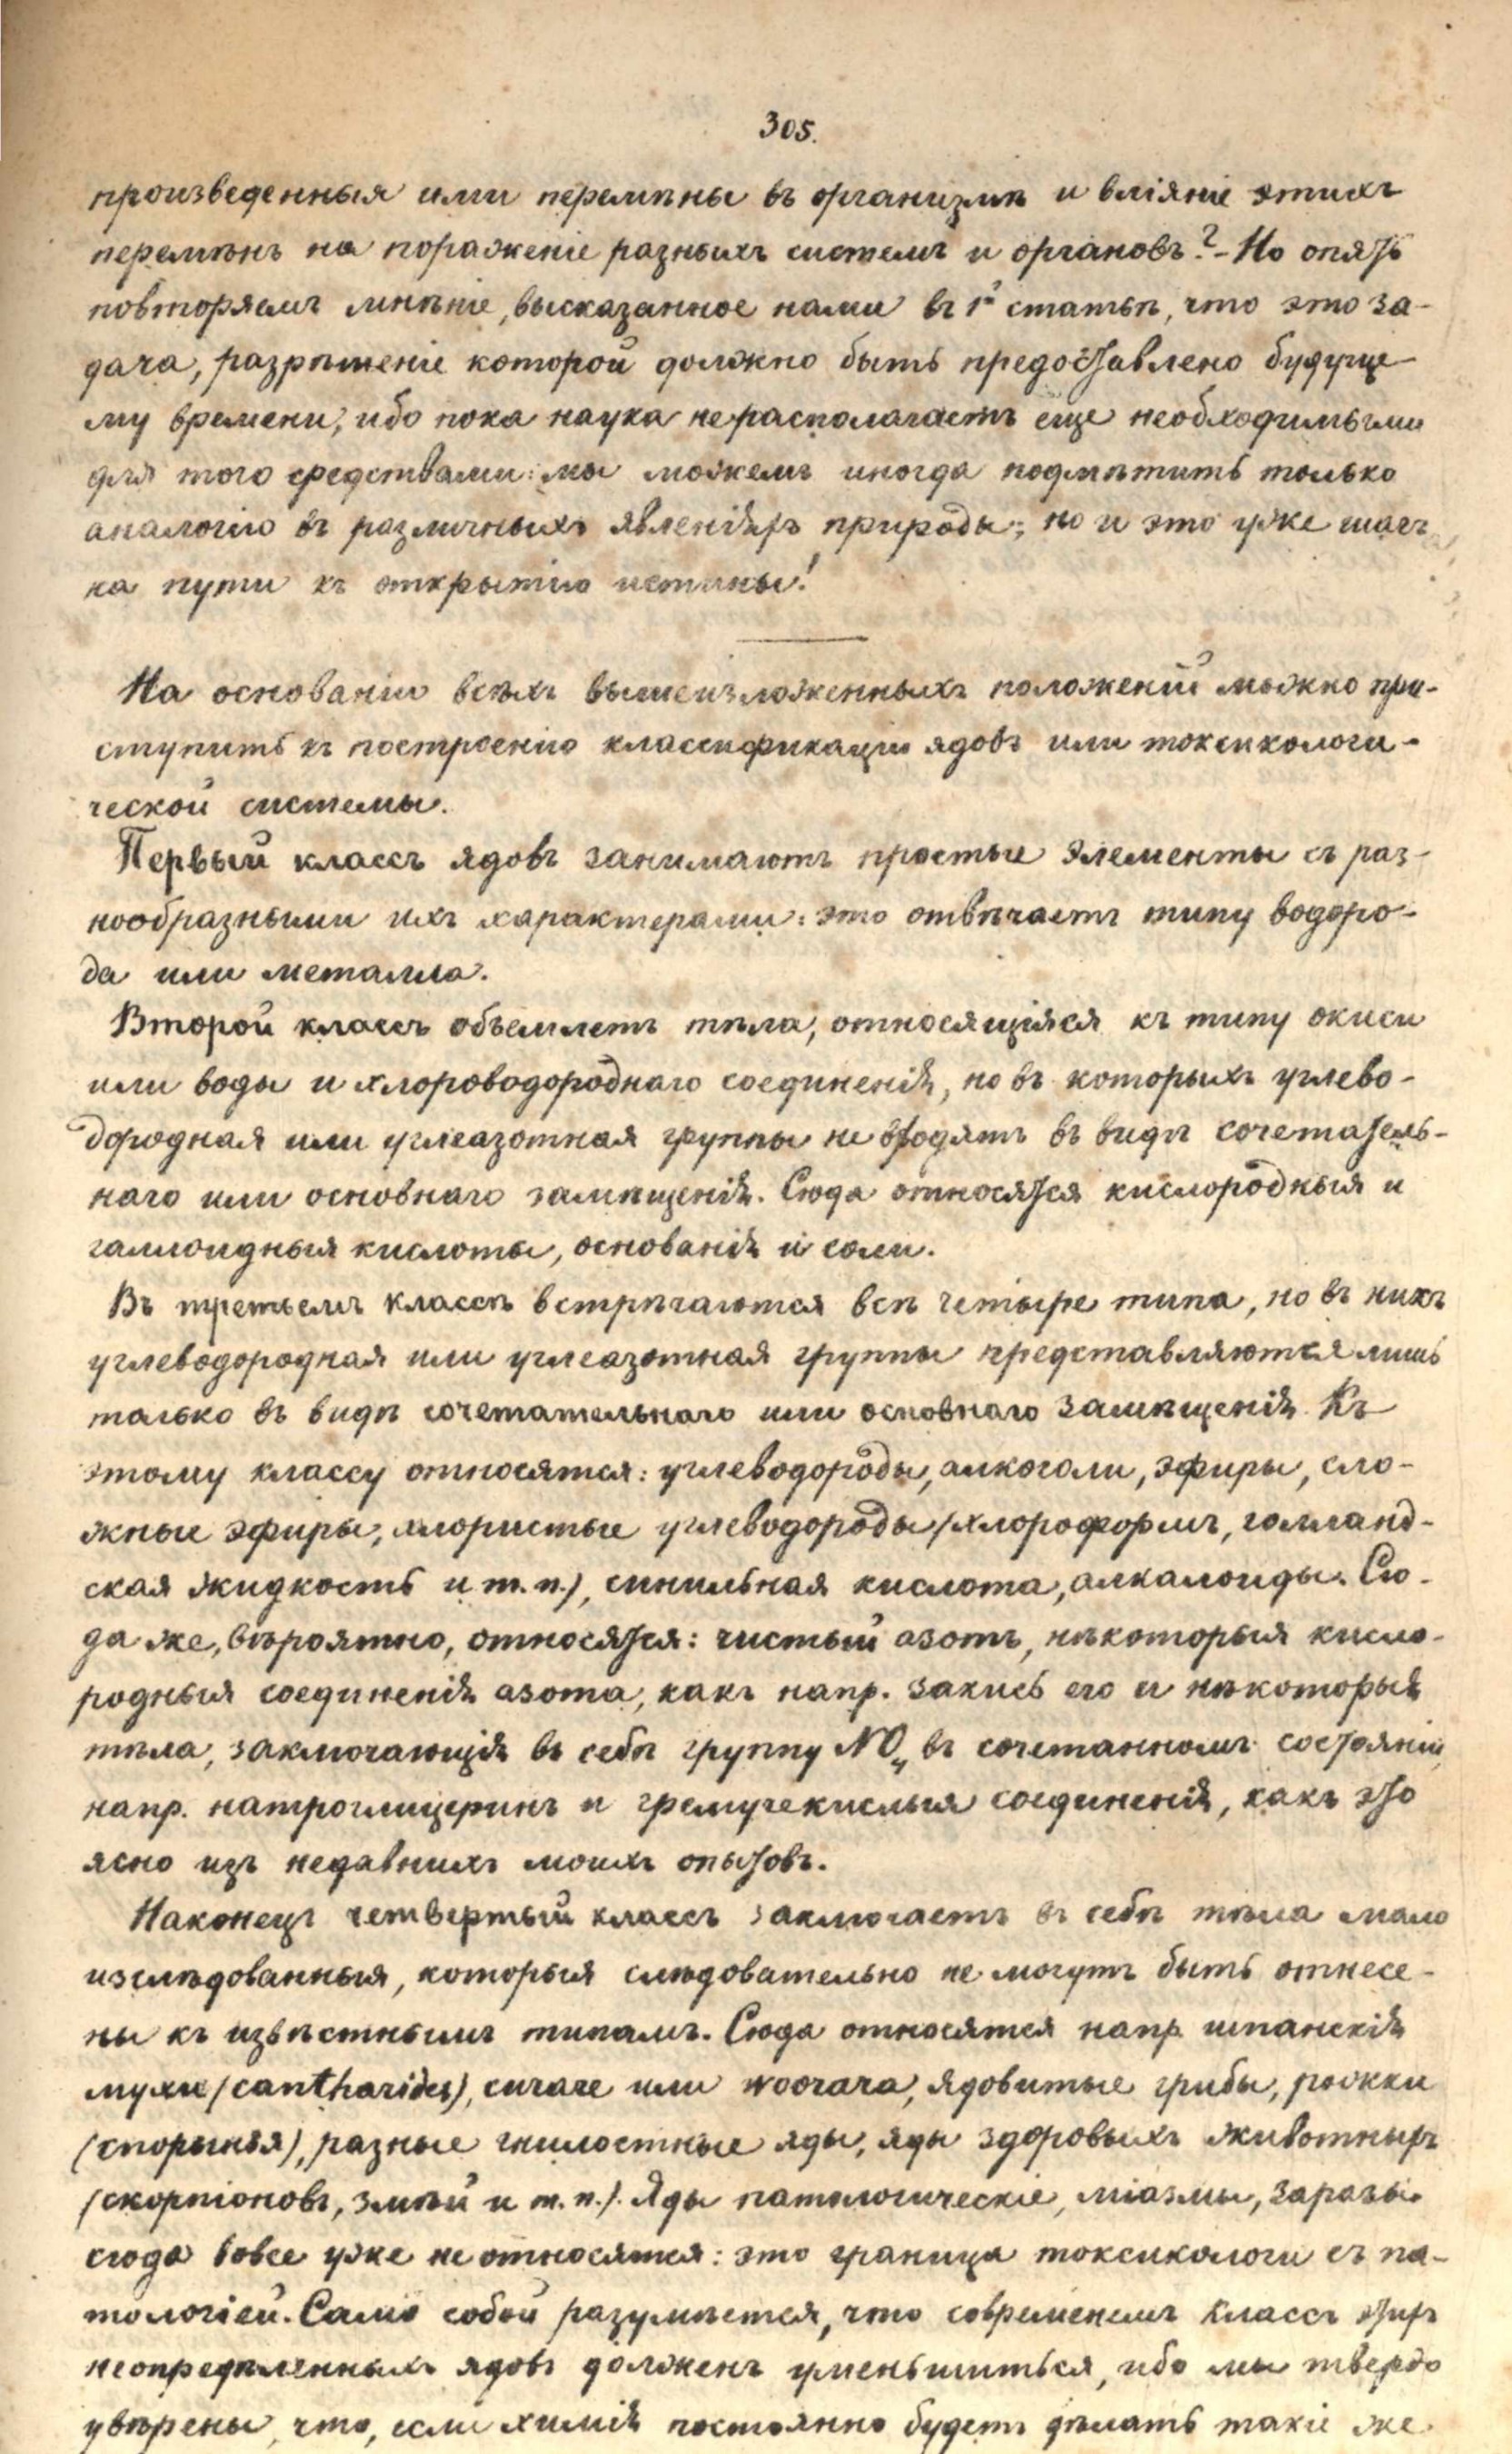 305.
произведенныя ими перемѣны въ организмѣ и вліяніе этихъ
перемѣнъ на пораженіе разныхъ системъ и органовъ?- Но опять
повторяемъ мнѣніе, высказанное нами въ 1й статьѣ, что это за-
дача, разрѣшеніе которой должно быть предоставлено будуще-
му времени, ибо пока наука не располагаетъ еще необходимыми
для того средствами: мы можемъ иногда подмѣтить только
аналогію въ различныхъ явленіяхъ природы; но и это уже шагъ
на пути къ открытію истины!
На основаніи всѣхъ вышеизложенныхъ положеній можно при-
ступить къ построенію классификаціи ядовъ или токсикологи-
ческой системы.
Первый классъ ядовъ занимаютъ простые элементы съ раз-
нообразными ихъ характерами: это отвѣчаетъ типу водоро-
да или металла.
Второй классъ объемлетъ тѣла, относящіяся къ типу окиси
или воды и хлороводороднаго соединенія, но въ которыхъ углево-
дородная или углеазотная группы не входятъ въ видѣ сочетатель-
наго или основнаго замѣщенія. Сюда относятся кислородныя и
галлоидныя кислоты, основанія и соли.
Въ третьемъ классѣ встрѣчаются всѣ четыре типа, но въ нихъ
углеводородная или углеазотная группы представляются лишь
только въ видѣ сочетательнаго или основнаго замѣщенія. Къ
этому классу относятся: углеводороды, алкоголи, эфиры, сло-
жные эфиры, хлористые углеводороды (хлороформъ, голланд-
ская жидкость и т. п.), синильная кислота, алкалоиды. Сю-
да же, вѣроятно, относятся: чистый азотъ, нѣкоторыя кисло-
родныя соединенія азота, какъ напр. закись его и нѣкоторыя
тѣла, заключающія въ себѣ группу NO₄ въ сочетанномъ состояніи,
напр. натроглицеринъ и гремучекислыя соединенія, какъ это
ясно изъ недавнихъ моихъ опытовъ.
Наконецъ четвертый классъ заключаетъ въ себѣ тѣла мало
изслѣдованныя, которыя слѣдовательно не могутъ быть отнесе-
ны къ извѣстнымъ типамъ. Сюда относятся напр. шпанскія
мухи (cantharides), curare или woorara, ядовитые грибы, рожки
(спорынья), разные гнилостные яды, яды здоровыхъ животныхъ
(скорпіоновъ, змѣй и т. п.). Яды патологическіе, міазмы, заразы
сюда вовсе уже не относятся: это граница токсикологи съ па-
тологіей. Само собой разумѣется, что современемъ классъ этихъ
неопредѣленныхъ ядовъ долженъ уменьшиться, ибо мы твердо
увѣрены, что, если химія постоянно будетъ дѣлать такіе же